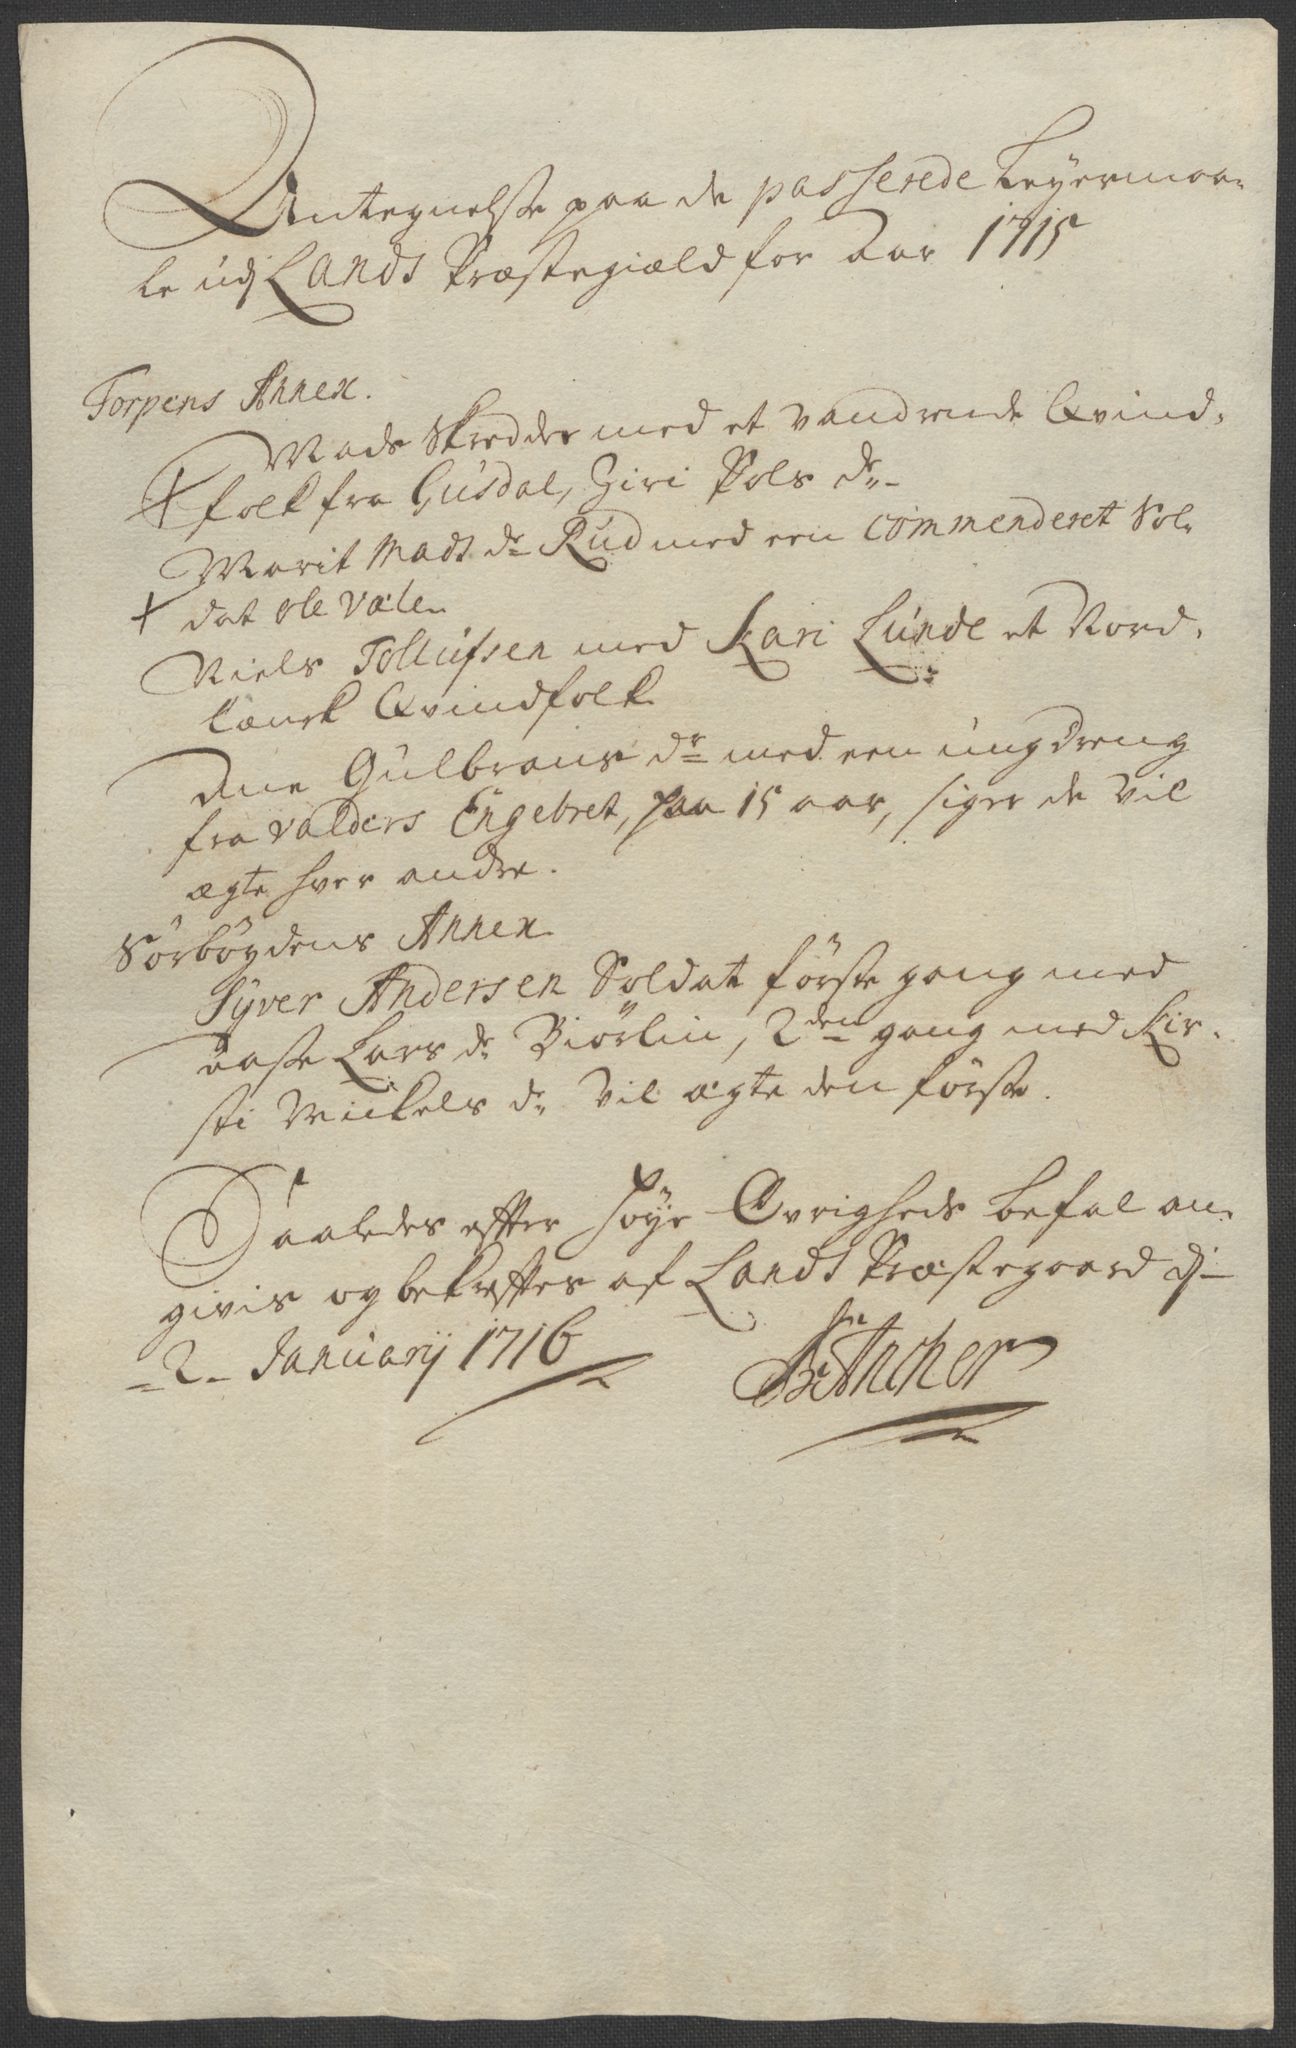 Antegnelse paa de passerede Leyermaa-
le udj Lands Præstegiæld for Aar 1715
Torpens Annex.
Mads Skredder med et vandrende Qvind-
+ folk fra Gusdal, Giri Pols dr-
Marit Mads dr Rud med een commenderet Sol-
+ dat Ole Vale-
Niels Tollufsen med Kari Lunde et Nord-
landsk Qvindfolk
Ane Gulbrans dr med een ung dreng
fra Valders Engebret, paa 15 aar, siger de vil
ægte hver andre.
Sørbøydens Annex
Syver Andersen Soldat første gang med
Aase Lars dr Biørlin, 2den gang med Kir-
sti Mickels dr vil ægte den første.
Saaledes effter høye Øvrigheds befal an-
givis og bekreffter af Lands Præstegaard dj-
2- Januarij 1716
Ancher